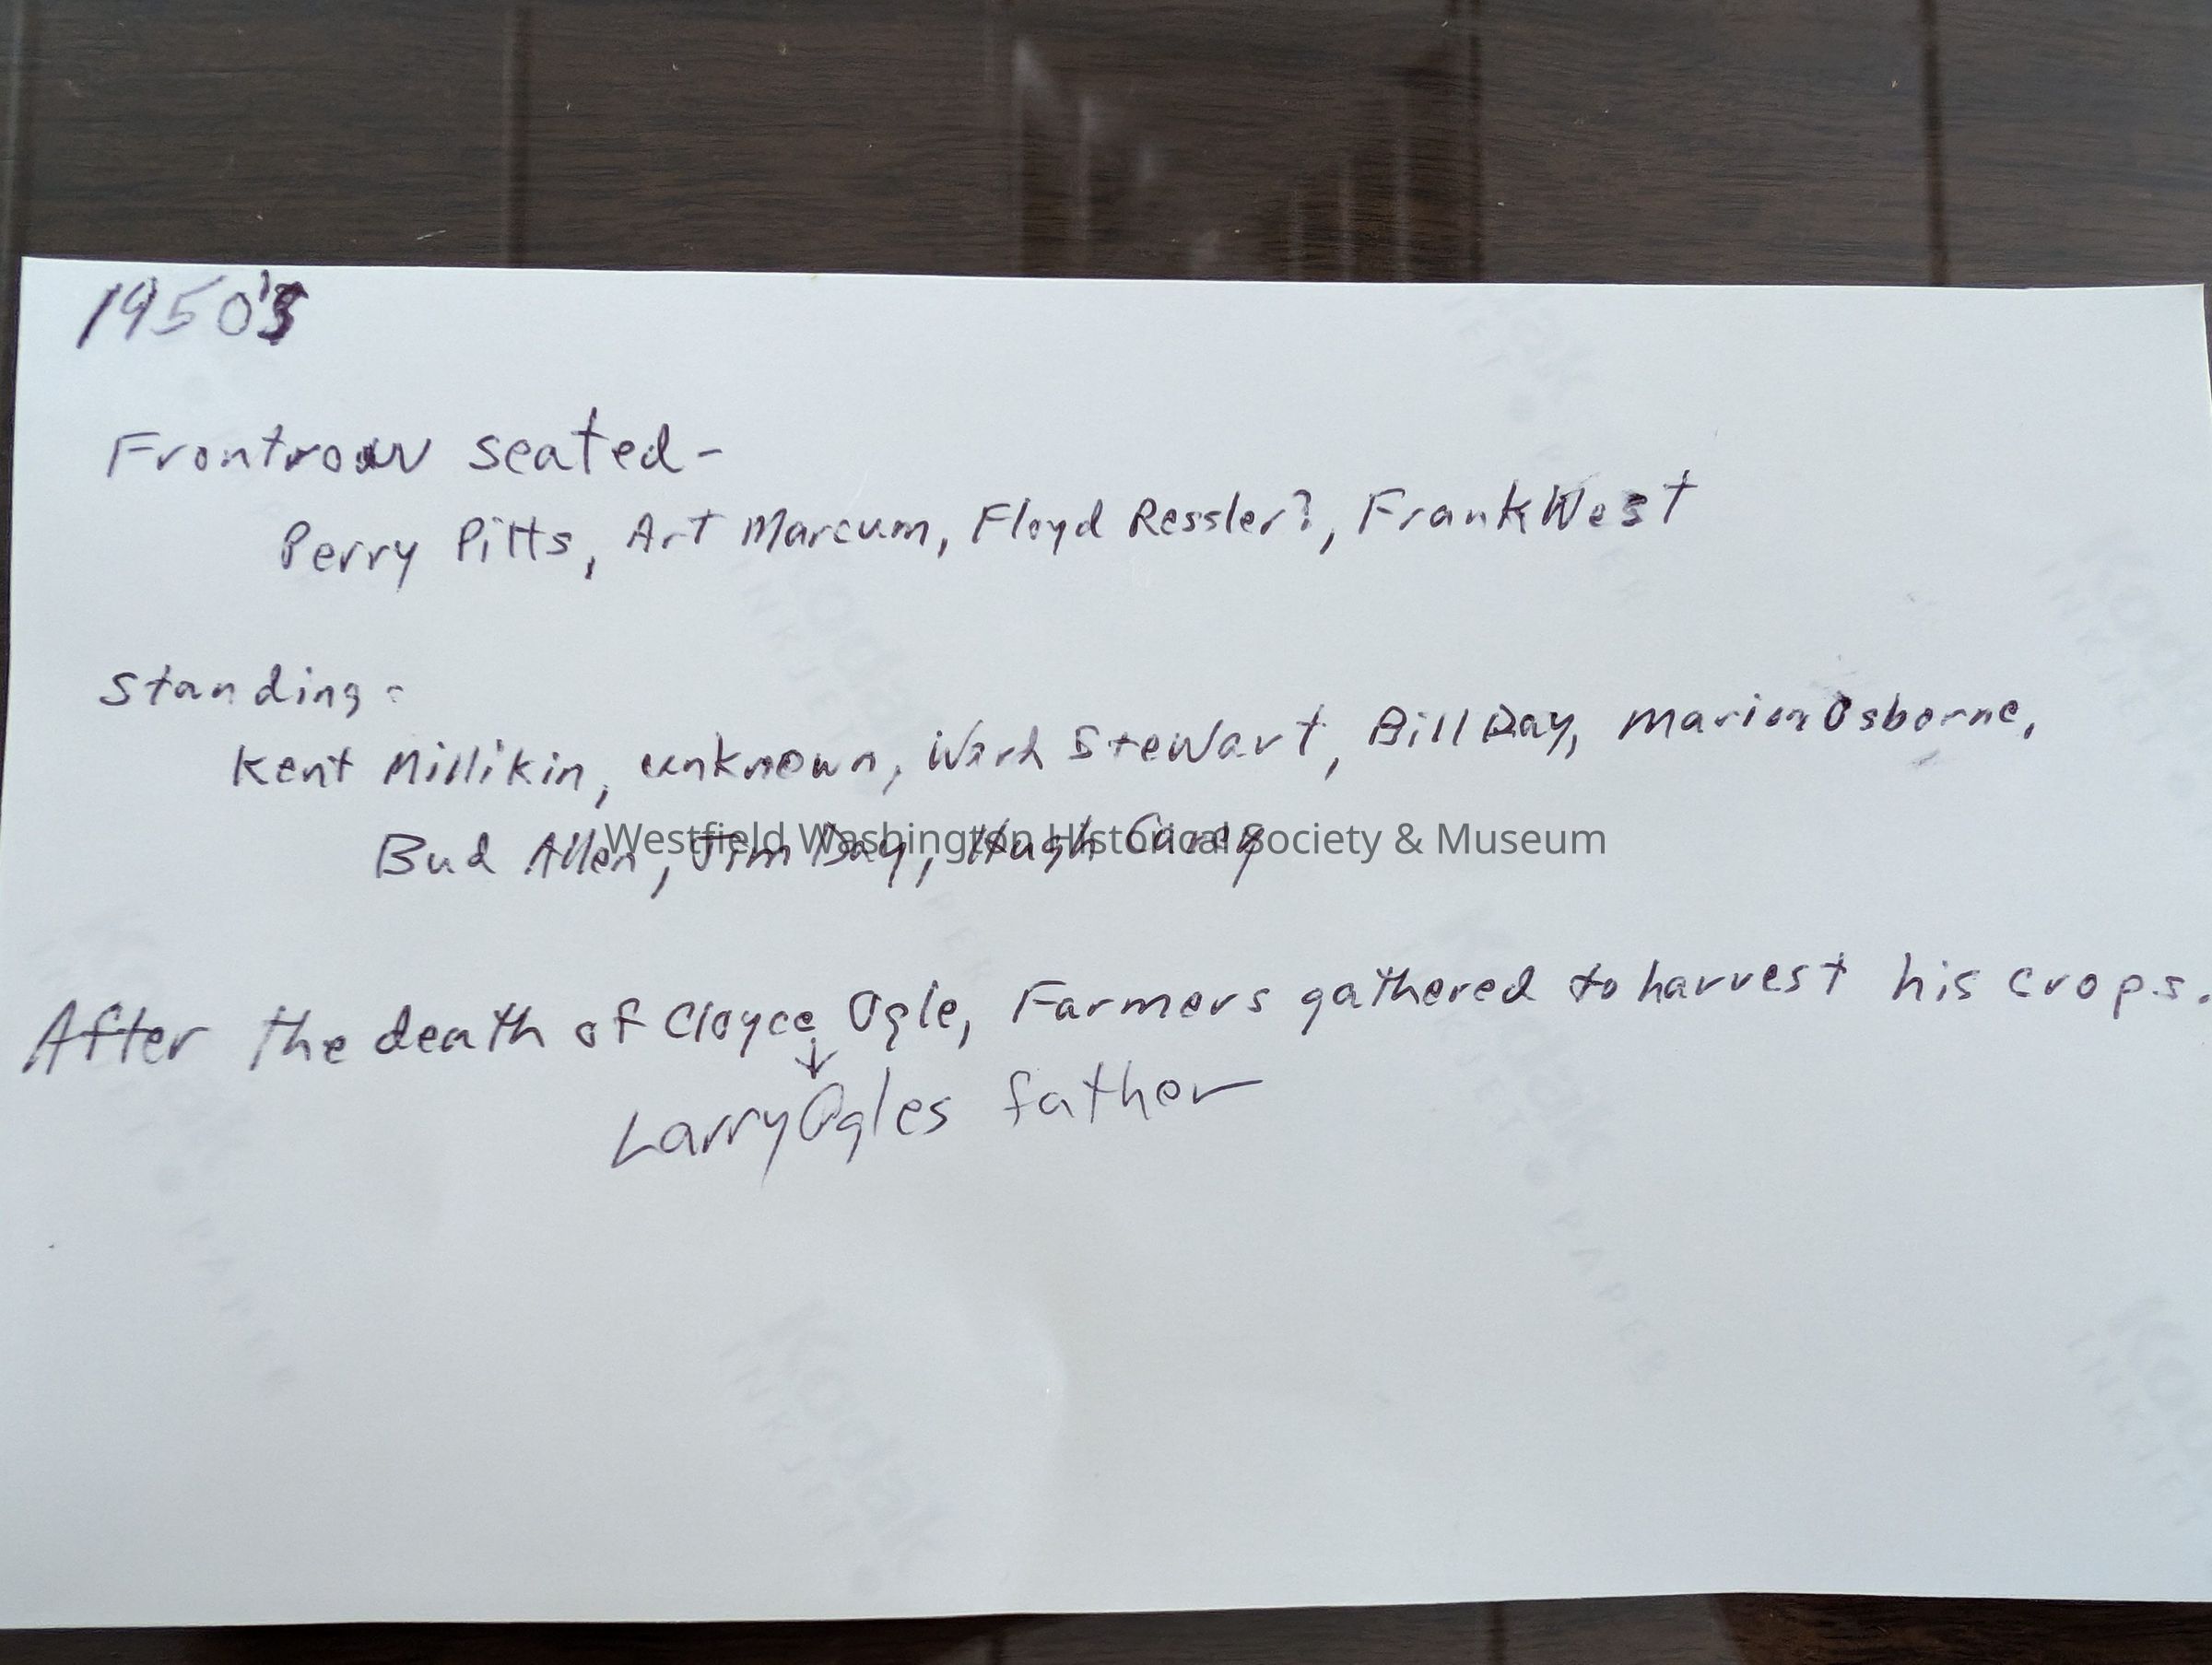 1950's
Frontrow seated-
Perry Pitts, Art Marcum, Floyd Ressler?, Frank West
Standing-
Kent Millikin, unknown, Stewart, Bill Day, Marion Osborne,
Bud Allen, Jim Day, Hugh Carey
Westfield Washington Historical Society & Museum
After the death of Cloyce Ogle, Farmers gathered to harvest his crops.
↓
Larry Ogles father